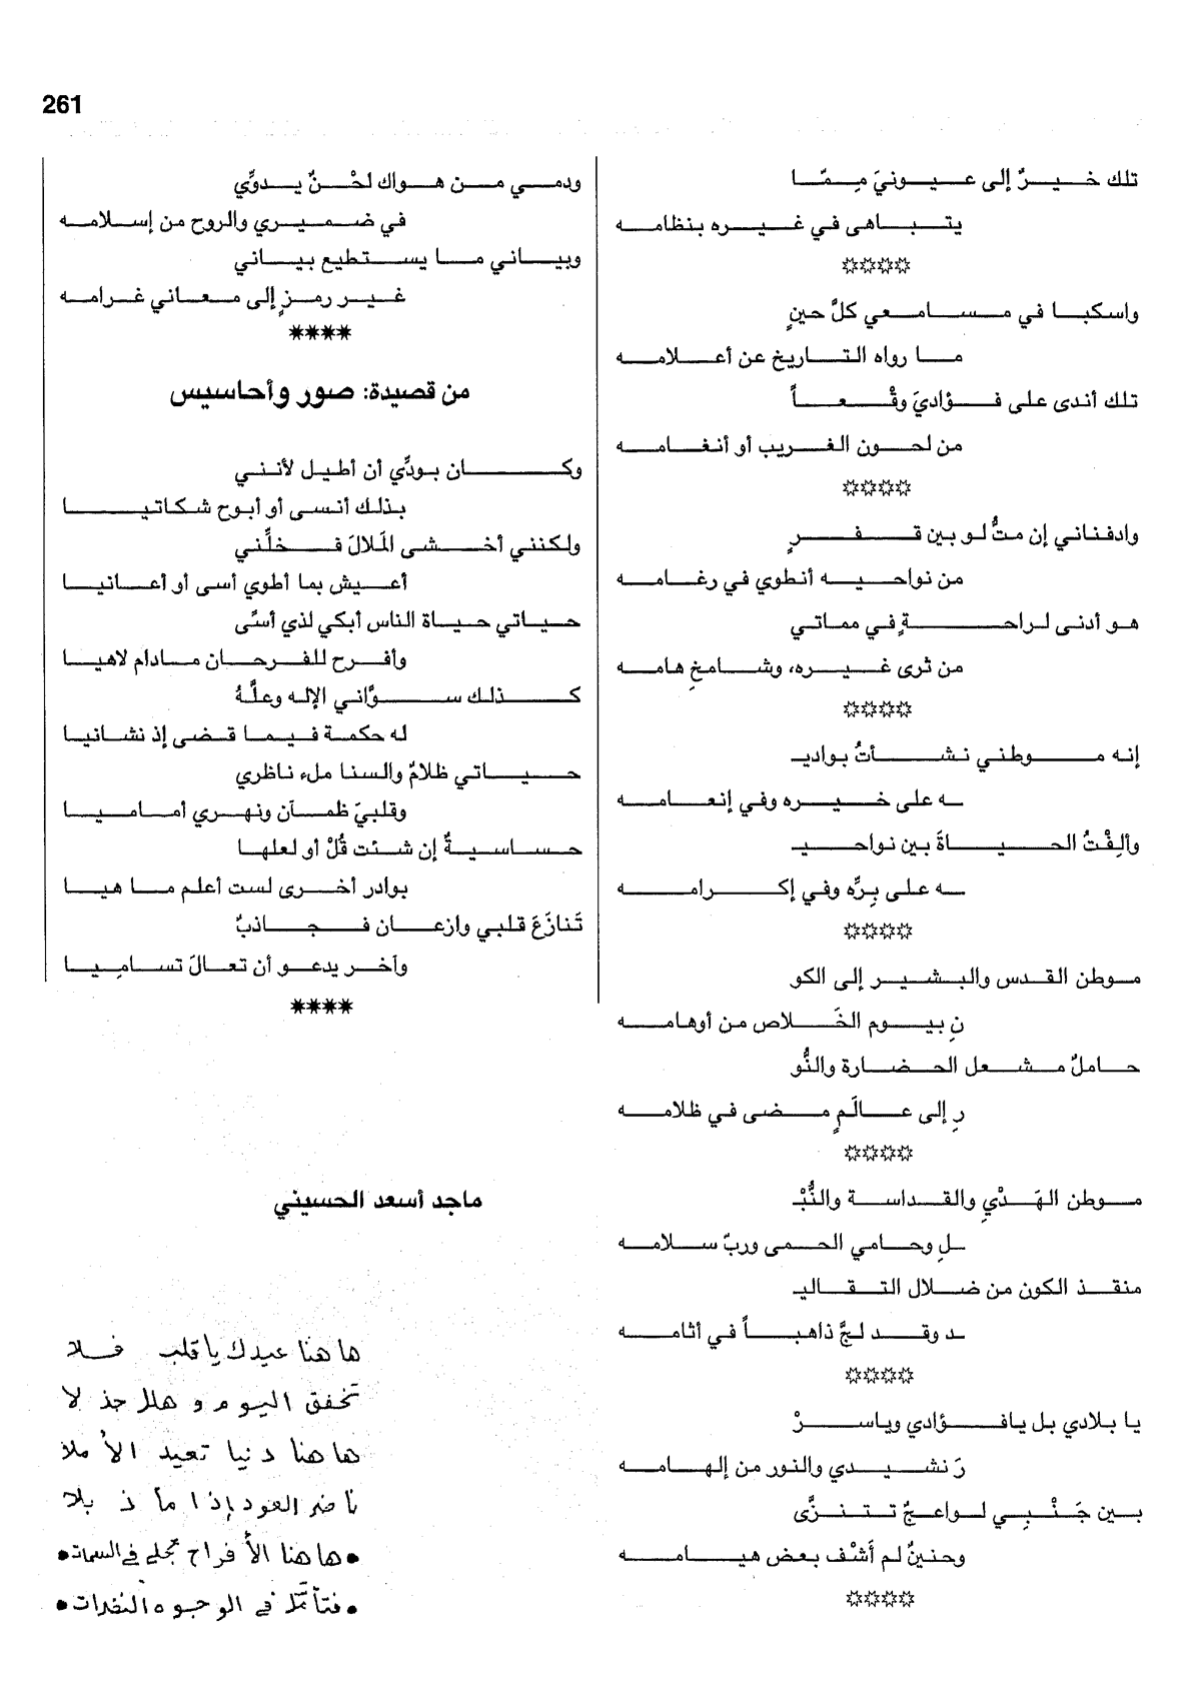 261
تلك خيرٌ إلى عيونيَ مِمّا
يتباهى في غيره بنظامه
واسكبا في مسامعي كلَّ حينٍ
ما رواه التاريخ عن أعلامه
تلك أندى على فؤاديَ وقْعاً
من لحون الغريب أو أنغامه
وادفناني إن متُّ لو بين قفرٍ
من نواحيه أنطوي في رغامه
هو أدنى لراحةٍ في مماتي
من ثرى غيره، وشامخِ هامه
إنه موطني نشأتُ بواديـ
ـه على خيره وفي إنعامه
وألِفْتُ الحياةَ بين نواحيـ
ـه على بِرِّه وفي إكرامه
موطن القدس والبشير إلى الكو
نِ بيوم الخَلاص من أوهامه
حاملٌ مشعل الحضارة والنُّو
رِ إلى عالَمٍ مضى في ظلامه
موطن الهَدْيِ والقداسة والنُّبْـ
ـلِ وحامي الحمى وربّ سلامه
منقذ الكون من ضلال التقاليـ
ـد وقد لجَّ ذاهباً في أثامه
يا بلادي بل يافؤادي وياسرْ
رَ نشيدي والنور من إلهامه
بين جَنْبِي لواعجٌ تتنزَّى
وحنينٌ لم أَشْف بعض هيامه
ودمي من هواك لحْنٌ يدوِّي
في ضميري والروح من إسلامه
وبياني ما يستطيع بياني
غير رمزٍ إلى معاني غرامه
****
من قصيدة: صور وأحاسيس
وكان بودِّي أن أطيل لأنني
بذلك أنسى أو أبوح شكاتيا
ولكنني أخشى المَلالَ فخلِّني
أعيش بما أطوي أسى أو أعانيا
حياتي حياة الناس أبكي لذي أسًى
وأفرح للفرحان مادام لاهيا
كذلك سوَّاني الإله وعلَّهُ
له حكمة فيما قضى إذ نشانيا
حياتي ظلامٌ والسنا ملء ناظري
وقلبيَ ظمآن ونهري أماميا
حساسيةٌ إن شئت قُلْ أو لعلها
بوادر أخرى لست أعلم ما هيا
تَنازَعَ قلبي وازعان فجاذبٌ
وآخر يدعو أن تعالَ تسامِيا
****
ماجد أسعد الحسيني
ها هنا عيدك يا قلب فلا
تخفق اليوم و هلل جذلا
ها هنا دنيا تعيد الأملا
ناضر العود إذا ما ذبلا
•ها هنا الأفراح تجلى في السمات•
•فتأمّل في الوجوه النضرات•